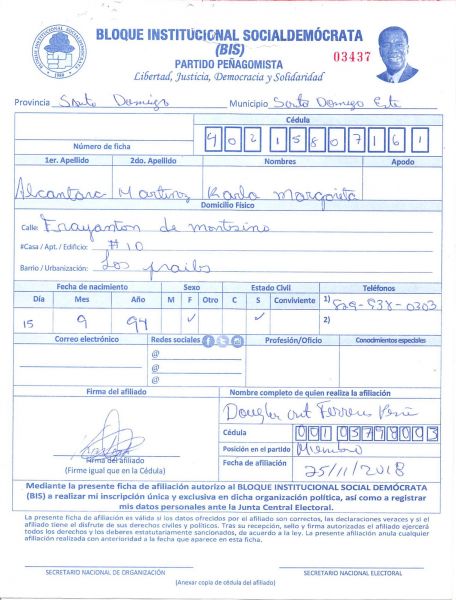 BLOQUE INSTITUCIONAL SOCIALDEMÓCRATA
(BIS)
03437
PARTIDO PEÑAGOMISTA
Libertad, Justicia, Democracia y Solidaridad
Provincia Santo Domingo Municipio Santo Domingo Este
Cédula
Número de ficha 402 1580716 1
1er. Apellido 2do. Apellido Nombres Apodo
Alcantara Martinez Karla Margarita
Domicilio Físico
Calle: Frayanton de montesino
#Casa / Apt. / Edificio: #10
Barrio / Urbanización: Los frailes
Fecha de nacimiento Sexo Estado Civil Teléfonos
Día Mes Año M F Otro C S Conviviente 1) 829-938-0303
15 9 94 ✓ ✓ 2)
Correo electrónico Redes sociales Profesión/Oficio Conocimientos especiales
@
@
@
Firma del afiliado Nombre completo de quien realiza la afiliación
Ferreras
Cédula
Posición en el partido Miembro
Firma del afiliado
(Firme igual que en la Cédula)
Fecha de afiliación 25/11/2018
Mediante la presente ficha de afiliación autorizo al BLOQUE INSTITUCIONAL SOCIAL DEMÓCRATA
(BIS) a realizar mi inscripción única y exclusiva en dicha organización política, así como a registrar
mis datos personales ante la Junta Central Electoral.
La presente ficha de afiliación es válida si los datos ofrecidos por el afiliado son correctos, las declaraciones veraces y si el
afiliado tiene el disfrute de sus derechos civiles y políticos. Tras su recepción, sello y firma autorizada el afiliado ejercerá
todos los derechos y los deberes estatutariamente sancionados, de acuerdo a la ley. La presente afiliación anula cualquier
afiliación realizada con anterioridad a la fecha que aparece en esta ficha.
SECRETARIO NACIONAL DE ORGANIZACIÓN SECRETARIO NACIONAL ELECTORAL
(Anexar copia de cédula del afiliado)